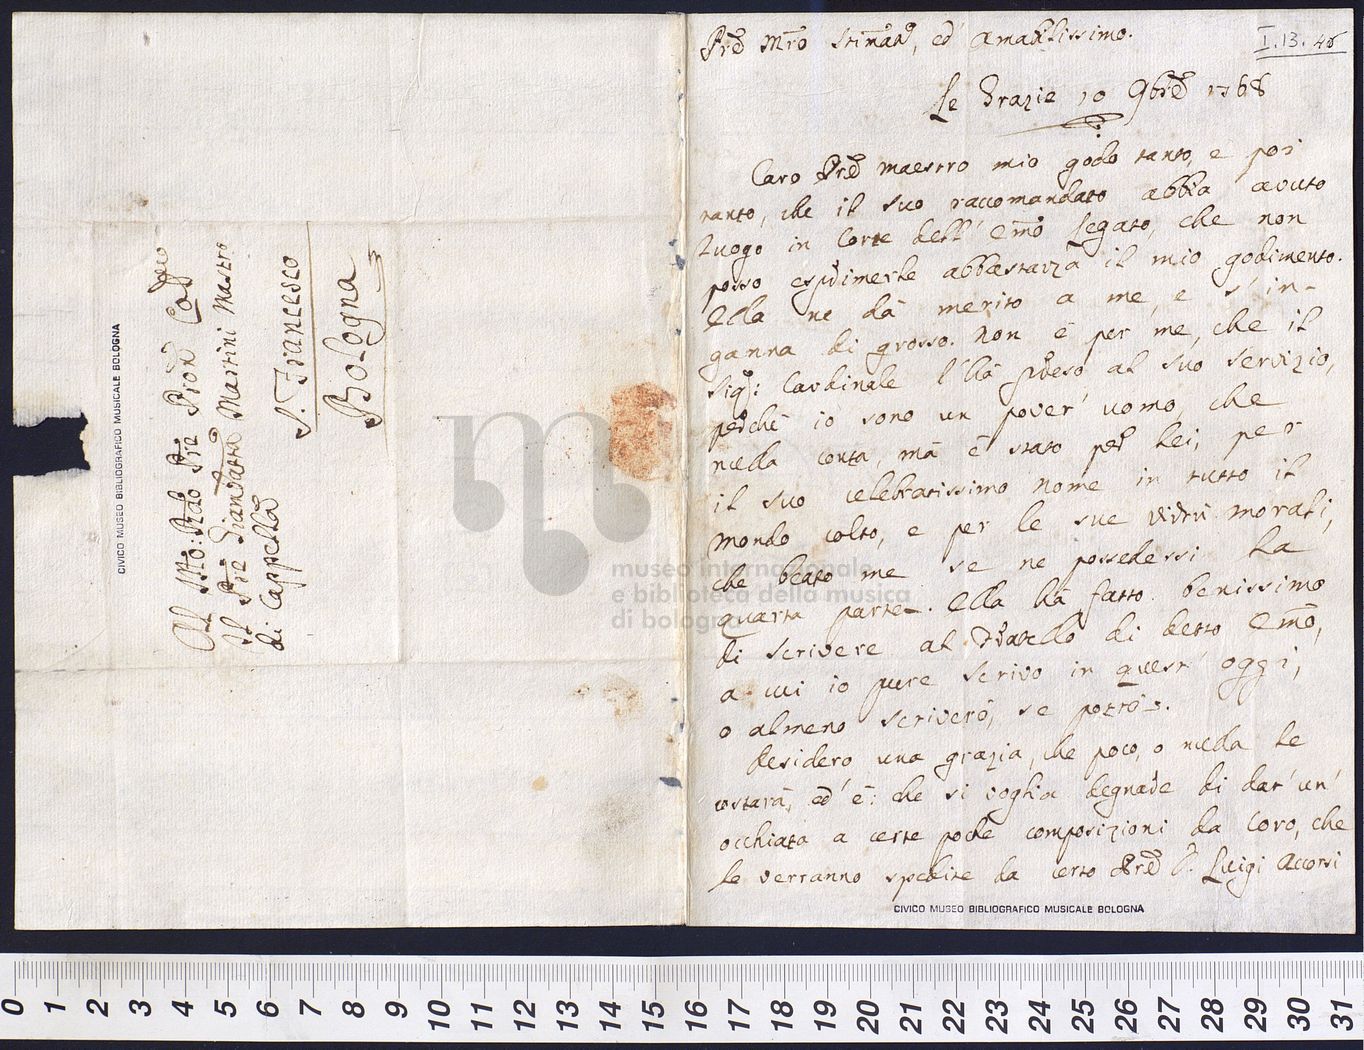 Al Mto: Rdo Pre Pron Col
Il Pre Giambatta Martini Mastro
di Cappella
S. Francesco
Bologna
CIVICO MUSEO BIBLIOGRAFICO MUSICALE BOLOGNA
I.13.46
Pre Mro Stimato, ed' Amabilissimo.
Le Grazie 10 9bre 1768
Caro Pre maestro mio godo tanto, e poi
tanto, che il suo raccomandato abbia avuto
luogo in Corte dell' Emo Legato, che non
posso esprimerle abbastanza il mio godimento.
Ella ne dà merito a me, e s'in-
ganna di grosso. Non è per me, che il
Sig: Cardinale l'hà preso al suo servizio,
perchè io sono un pover' uomo, che
nulla conta, mà è stato per lei, per
il suo celebratissimo nome in tutto il
mondo colto, e per le sue virtù morali,
che beato me se ne possedessi la
quarta parte. Ella hà fatto benissimo
di scrivere al Fratello di detto Emo,
a cui io pure scrivo in quest' oggi,
o almeno scriverò, se potrò.
Desidero una grazia, che poco, o nulla le
costarà, ed' è: che si voglia degnare di dar' un'
occhiata a certe poche composizioni da Coro, che
le verranno spedite da certo Pre D. Luigi Accorsi
CIVICO MUSEO BIBLIOGRAFICO MUSICALE BOLOGNA
museo internazionale
e biblioteca della musica
di bologna
0 1 2 3 4 5 6 7 8 9 10 11 12 13 14 15 16 17 18 19 20 21 22 23 24 25 26 27 28 29 30 31